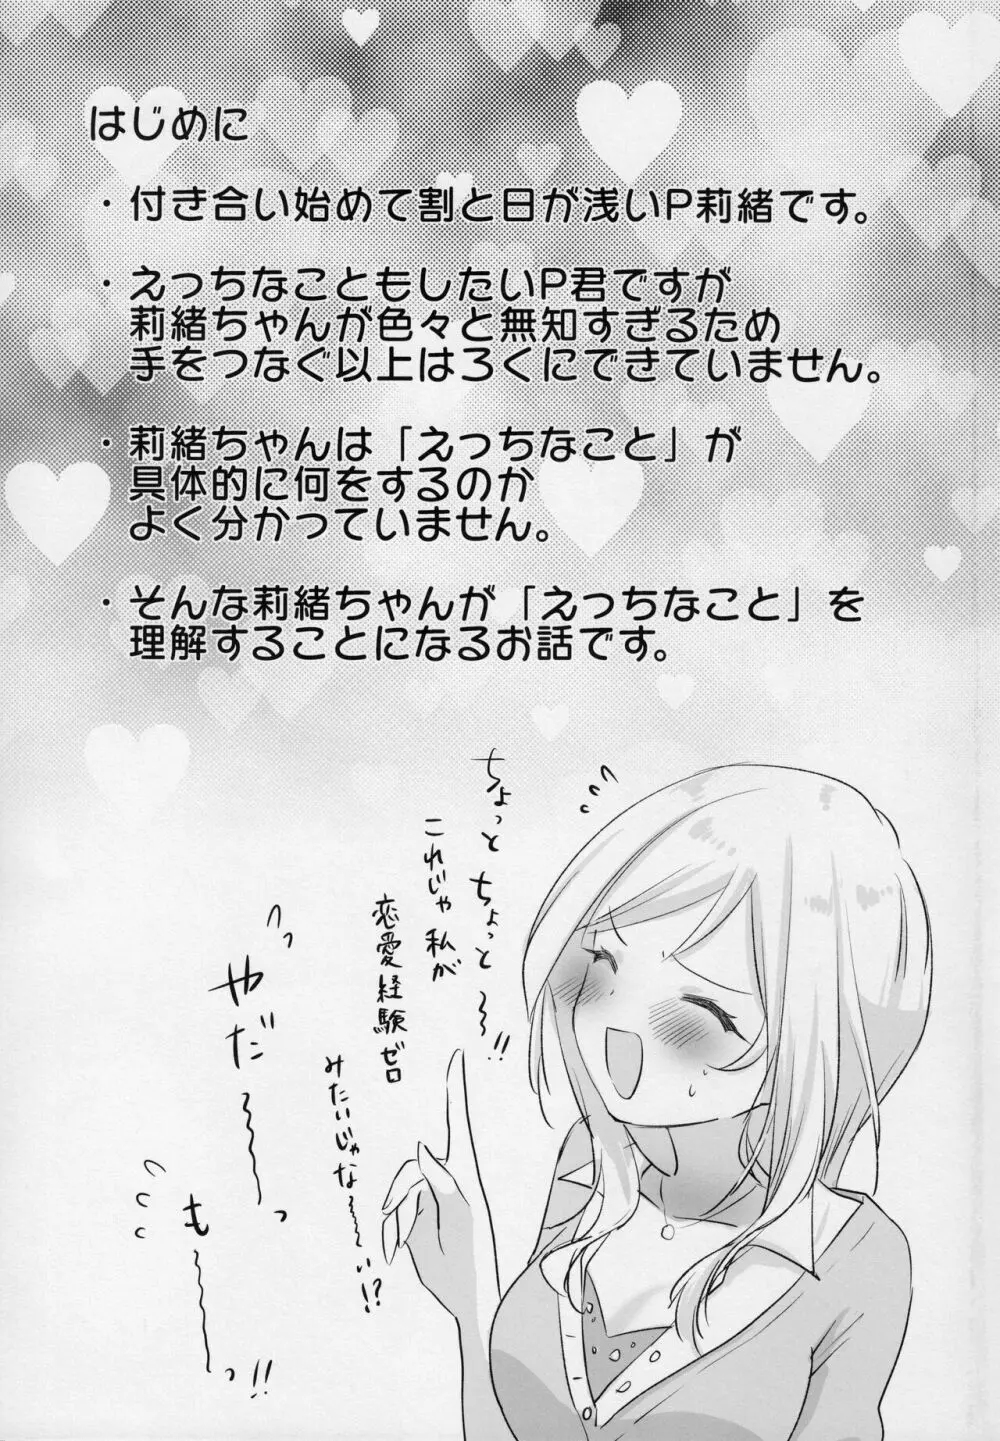 はじめに
・付き合い始めて割と日が浅いP莉緒です。
・えっちなこともしたいP君ですが
莉緒ちゃんが色々と無知すぎるため
手をつなぐ以上はろくにできていません。
・莉緒ちゃんは「えっちなこと」が
具体的に何をするのか
よく分かっていません。
・そんな莉緒ちゃんが「えっちなこと」を
理解することになるお話です。
ちょっとちょっと〜〜!!
これじゃ私が
恋愛経験ゼロ
みたいじゃな〜〜い!?
やだ〜〜っ
も〜〜っ!!